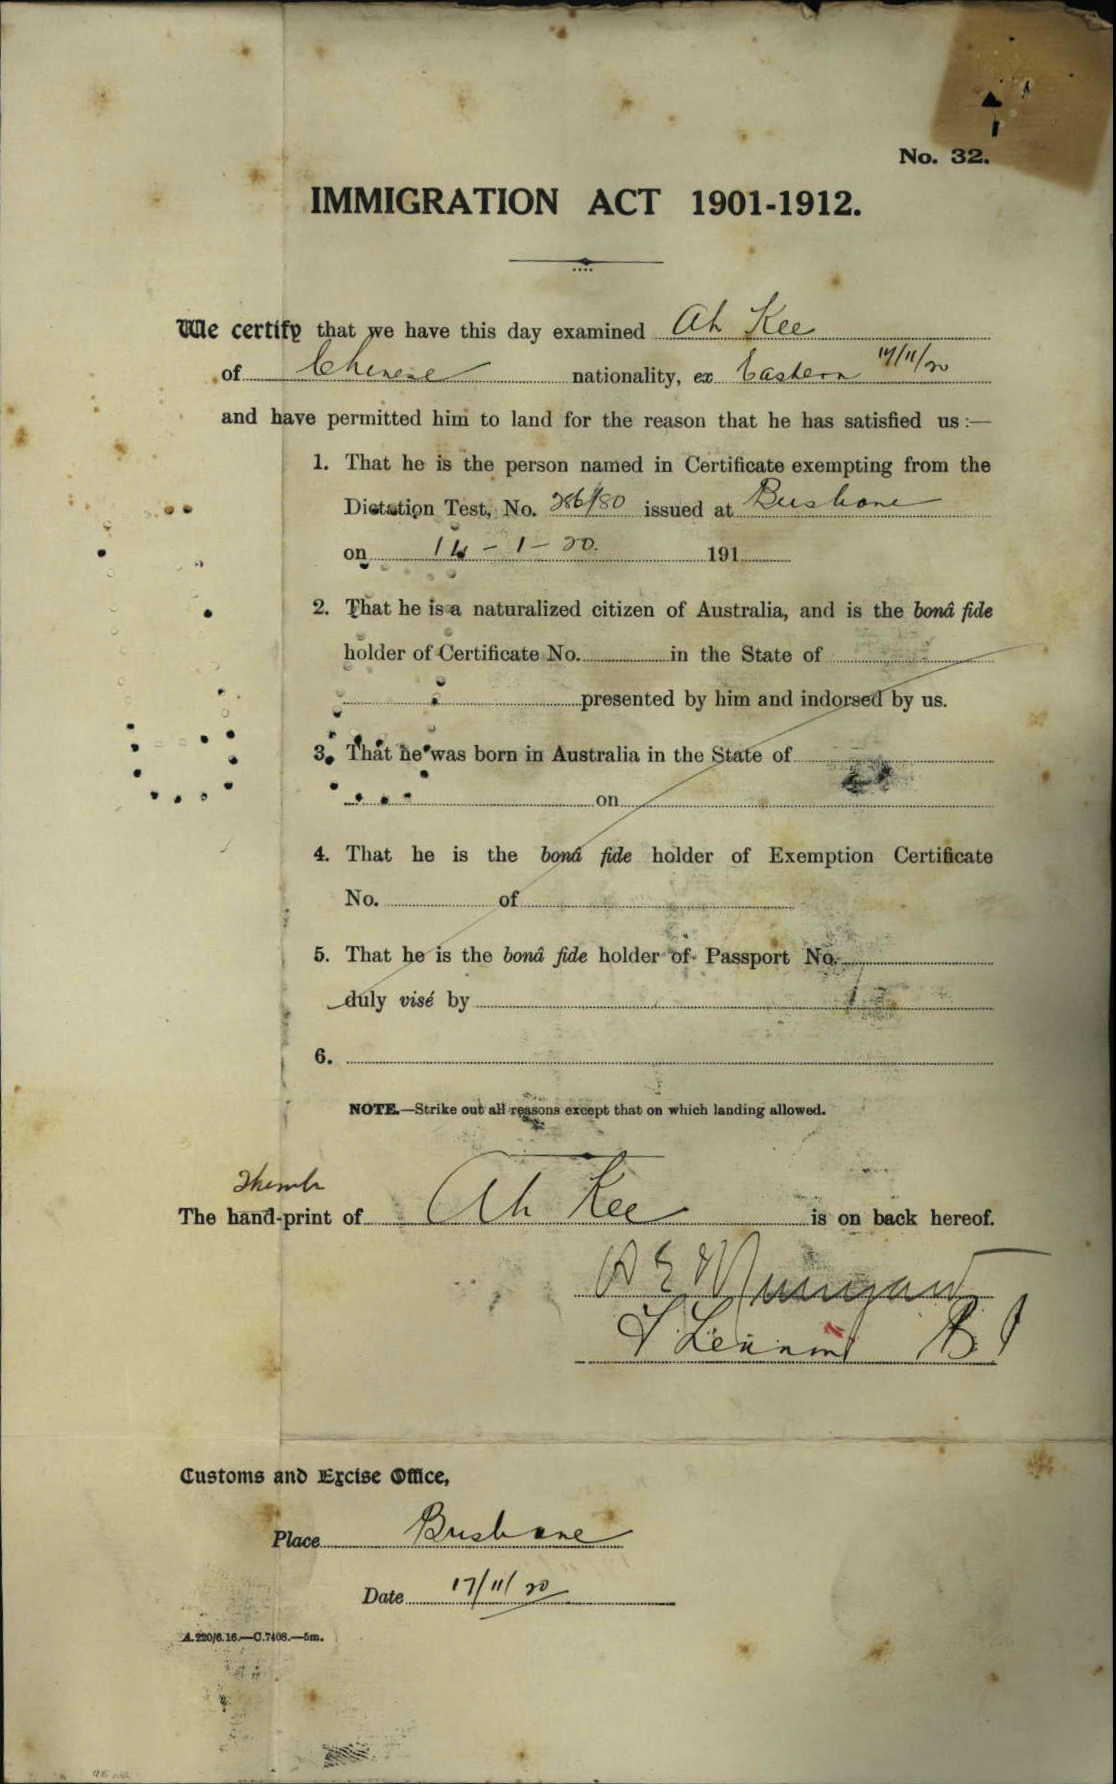 No. 32.
IMMIGRATION ACT 1901-1912.
We certify that we have this day examined Ah Kee
of Chinese nationality, ex Eastern 17/11/20
and have permitted him to land for the reason that he has satisfied us:—
1. That he is the person named in Certificate exempting from the
Dictation Test, No. 286/80 issued at Brisbane
on 14-1-20. 191
2. That he is a naturalized citizen of Australia, and is the bonâ fide
holder of Certificate No. in the State of
presented by him and indorsed by us.
3. That he was born in Australia in the State of
on
4. That he is the bonâ fide holder of Exemption Certificate
No. of
5. That he is the bonâ fide holder of Passport No.
duly visé by
6.
NOTE.—Strike out all reasons except that on which landing allowed.
Thumb
The hand-print of Ah Kee is on back hereof.
Customs and Excise Office,
Place Brisbane
Date 17/11/20
A.220/6.16.—C.7408.—5m.